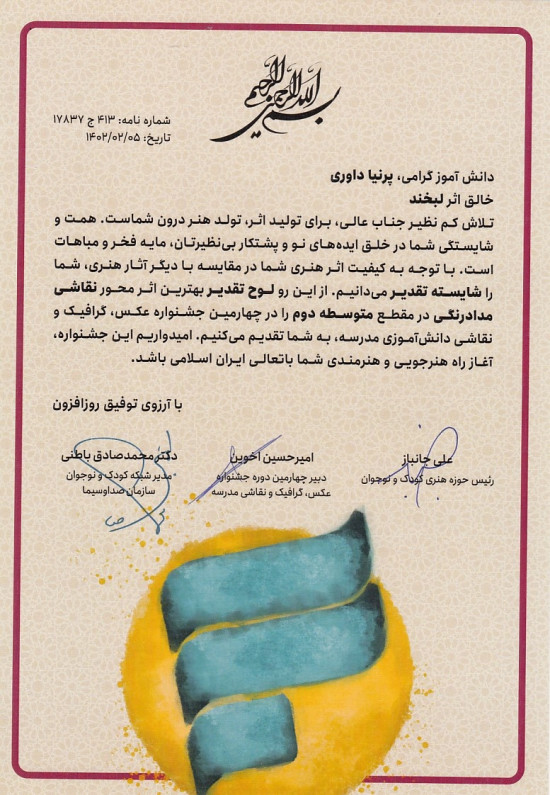 بسم الله الرحمن الرحیم
شماره نامه: ۴۱۳ ج ۱۷۸۳۷
تاریخ: ۱۴۰۲/۰۲/۰۵
دانش آموز گرامی، پرنیا داوری
خالق اثر لبخند
تلاش کم نظیر جناب عالی، برای تولید اثر، تولد هنر درون شماست. همت و
شایستگی شما در خلق ایده‌های نو و پشتکار بی‌نظیرتان، مایه فخر و مباهات
است. با توجه به کیفیت اثر هنری شما در مقایسه با دیگر آثار هنری، شما
را شایسته تقدیر می‌دانیم. از این رو لوح تقدیر بهترین اثر محور نقاشی
مدادرنگی در مقطع متوسطه دوم را در چهارمین جشنواره عکس، گرافیک و
نقاشی دانش‌آموزی مدرسه، به شما تقدیم می‌کنیم. امیدواریم این جشنواره،
آغاز راه هنرجویی و هنرمندی شما باتعالی ایران اسلامی باشد.
با آرزوی توفیق روزافزون
علی جانباز
رئیس حوزه هنری کودک و نوجوان
امیرحسین اخوین
دبیر چهارمین دوره جشنواره
عکس، گرافیک و نقاشی مدرسه
دکتر محمدصادق باطنی
مدیر شبکه کودک و نوجوان
سازمان صداوسیما